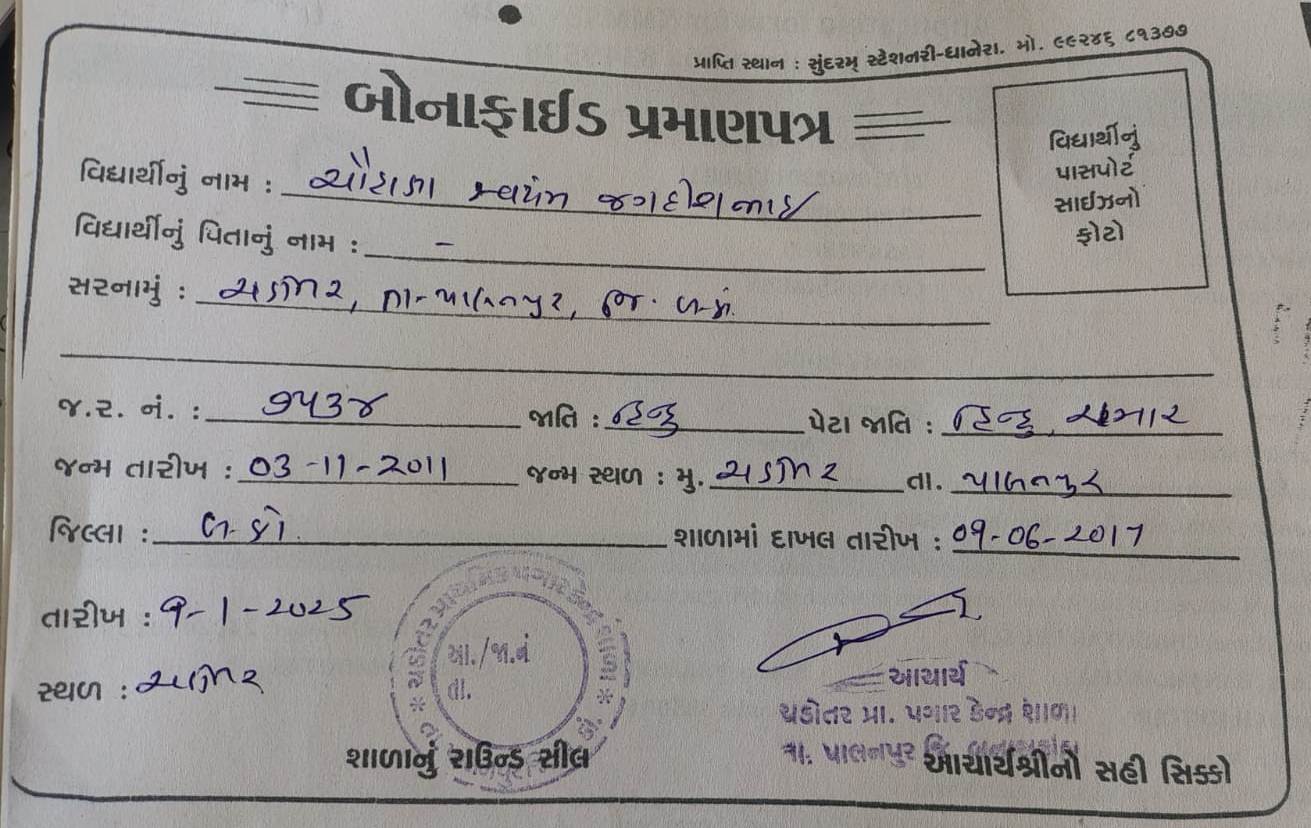 પ્રાપ્તિ સ્થાન : સુંદરમ્ સ્ટેશનરી-ધાનેરા. મો. ૯૯૨૪૬ ૮૧૩૭૭
બોનાફાઈડ પ્રમાણપત્ર
વિદ્યાર્થીનું પાસપોર્ટ સાઈઝનો ફોટો
વિદ્યાર્થીનું નામ : સ્વયંમ જગદીશભાઇ
વિદ્યાર્થીનું પિતાનું નામ : -
સરનામું : ચડોતર, તા-પાલનપુર, જિ. બ.કાં.
જ.ર. નં. : ૭૫૩૪ જાતિ : હિન્દુ પેટા જાતિ : હિન્દુ, ચમાર
જન્મ તારીખ : 03-11-2011 જન્મ સ્થળ : મુ. ચડોતર તા. પાલનપુર
જિલ્લા : બ.કાં. શાળામાં દાખલ તારીખ : 09-06-2017
તારીખ : 9-1-2025
સ્થળ : ચડોતર
ચડોતર પ્રાથમિક પગાર કેન્દ્ર શાળા
આ./જા.નં
તા.
શાળાનું રાઉન્ડ સીલ
આચાર્ય
ચડોતર પ્રા. પગાર કેન્દ્ર શાળા
તા. પાલનપુર જિ. બનાસકાંઠા
આચાર્યશ્રીનો સહી સિક્કો